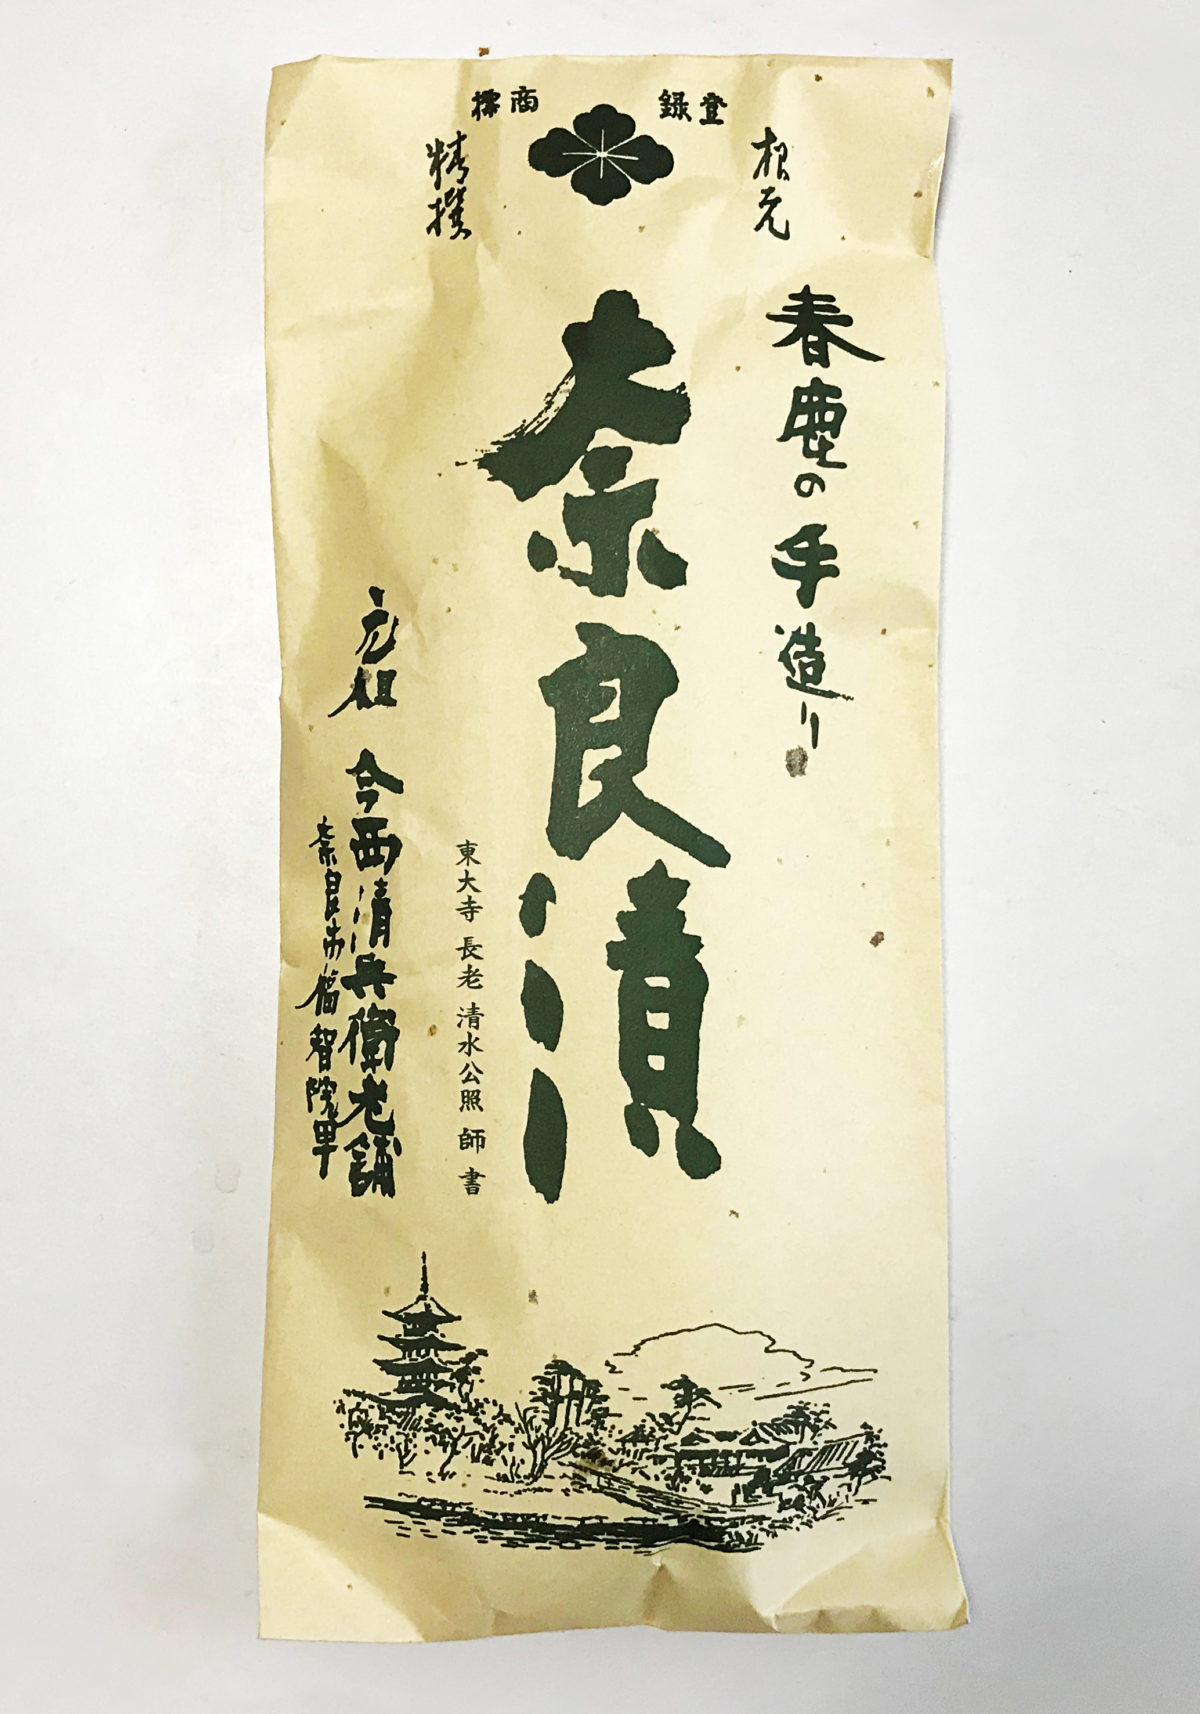 登録
商標
根元
精撰
春鹿の手造り
奈良漬
東大寺 長老 清水公照 師 書
元祖 今西清兵衛老舗
奈良市福智院町